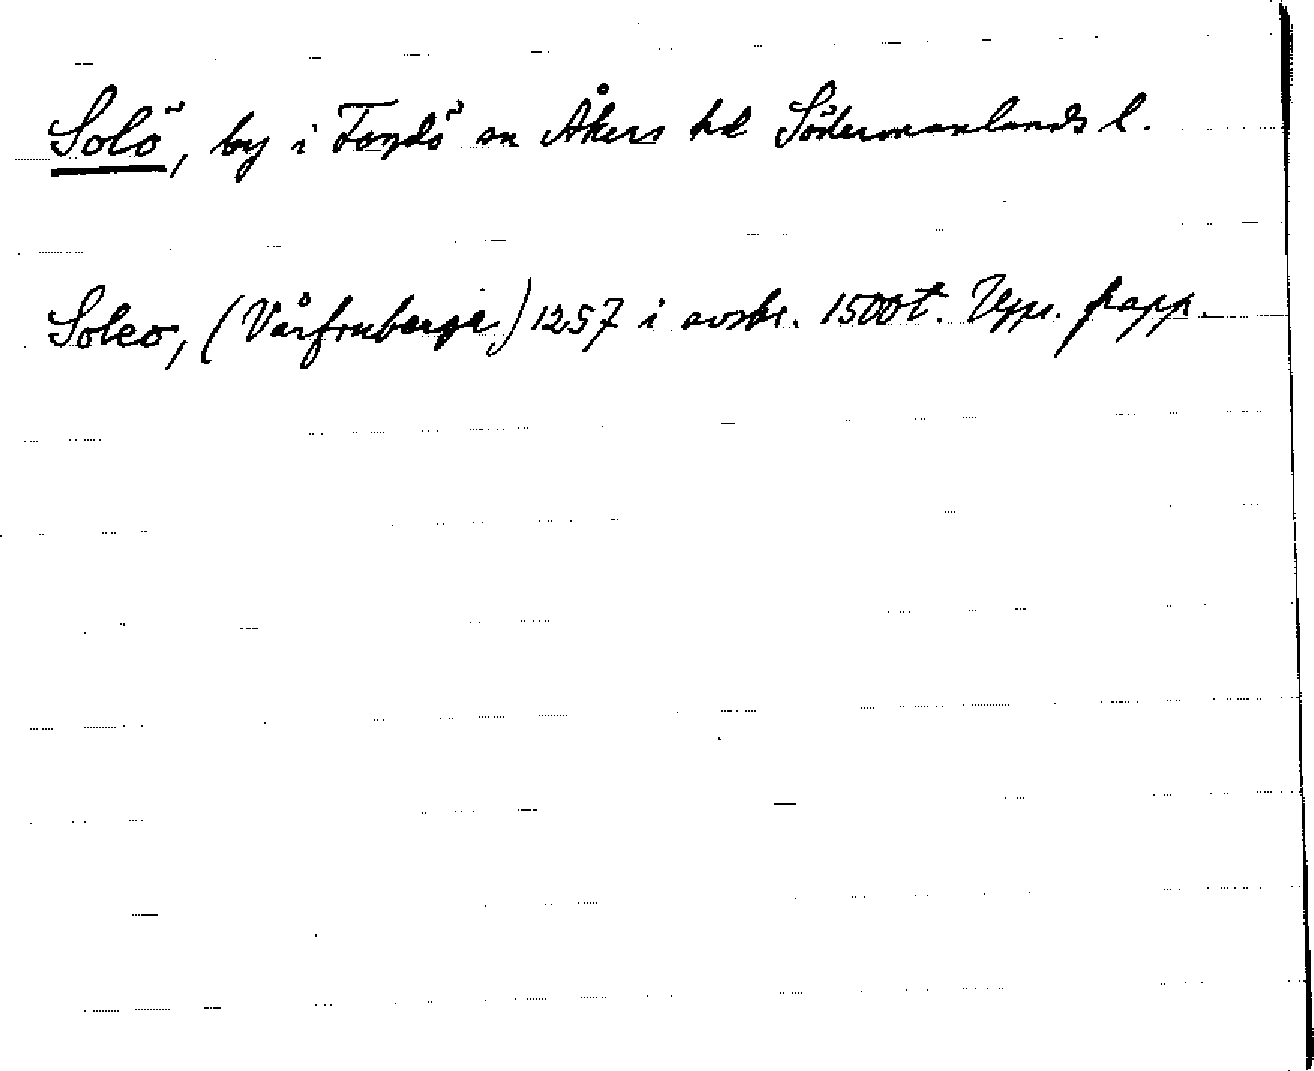 Solö, by i Fogdö sn Åkers hd Södermanlands l.
Soleo, (Vårfruberga) 1257 i avskr. 1500t. Upps. frapp.